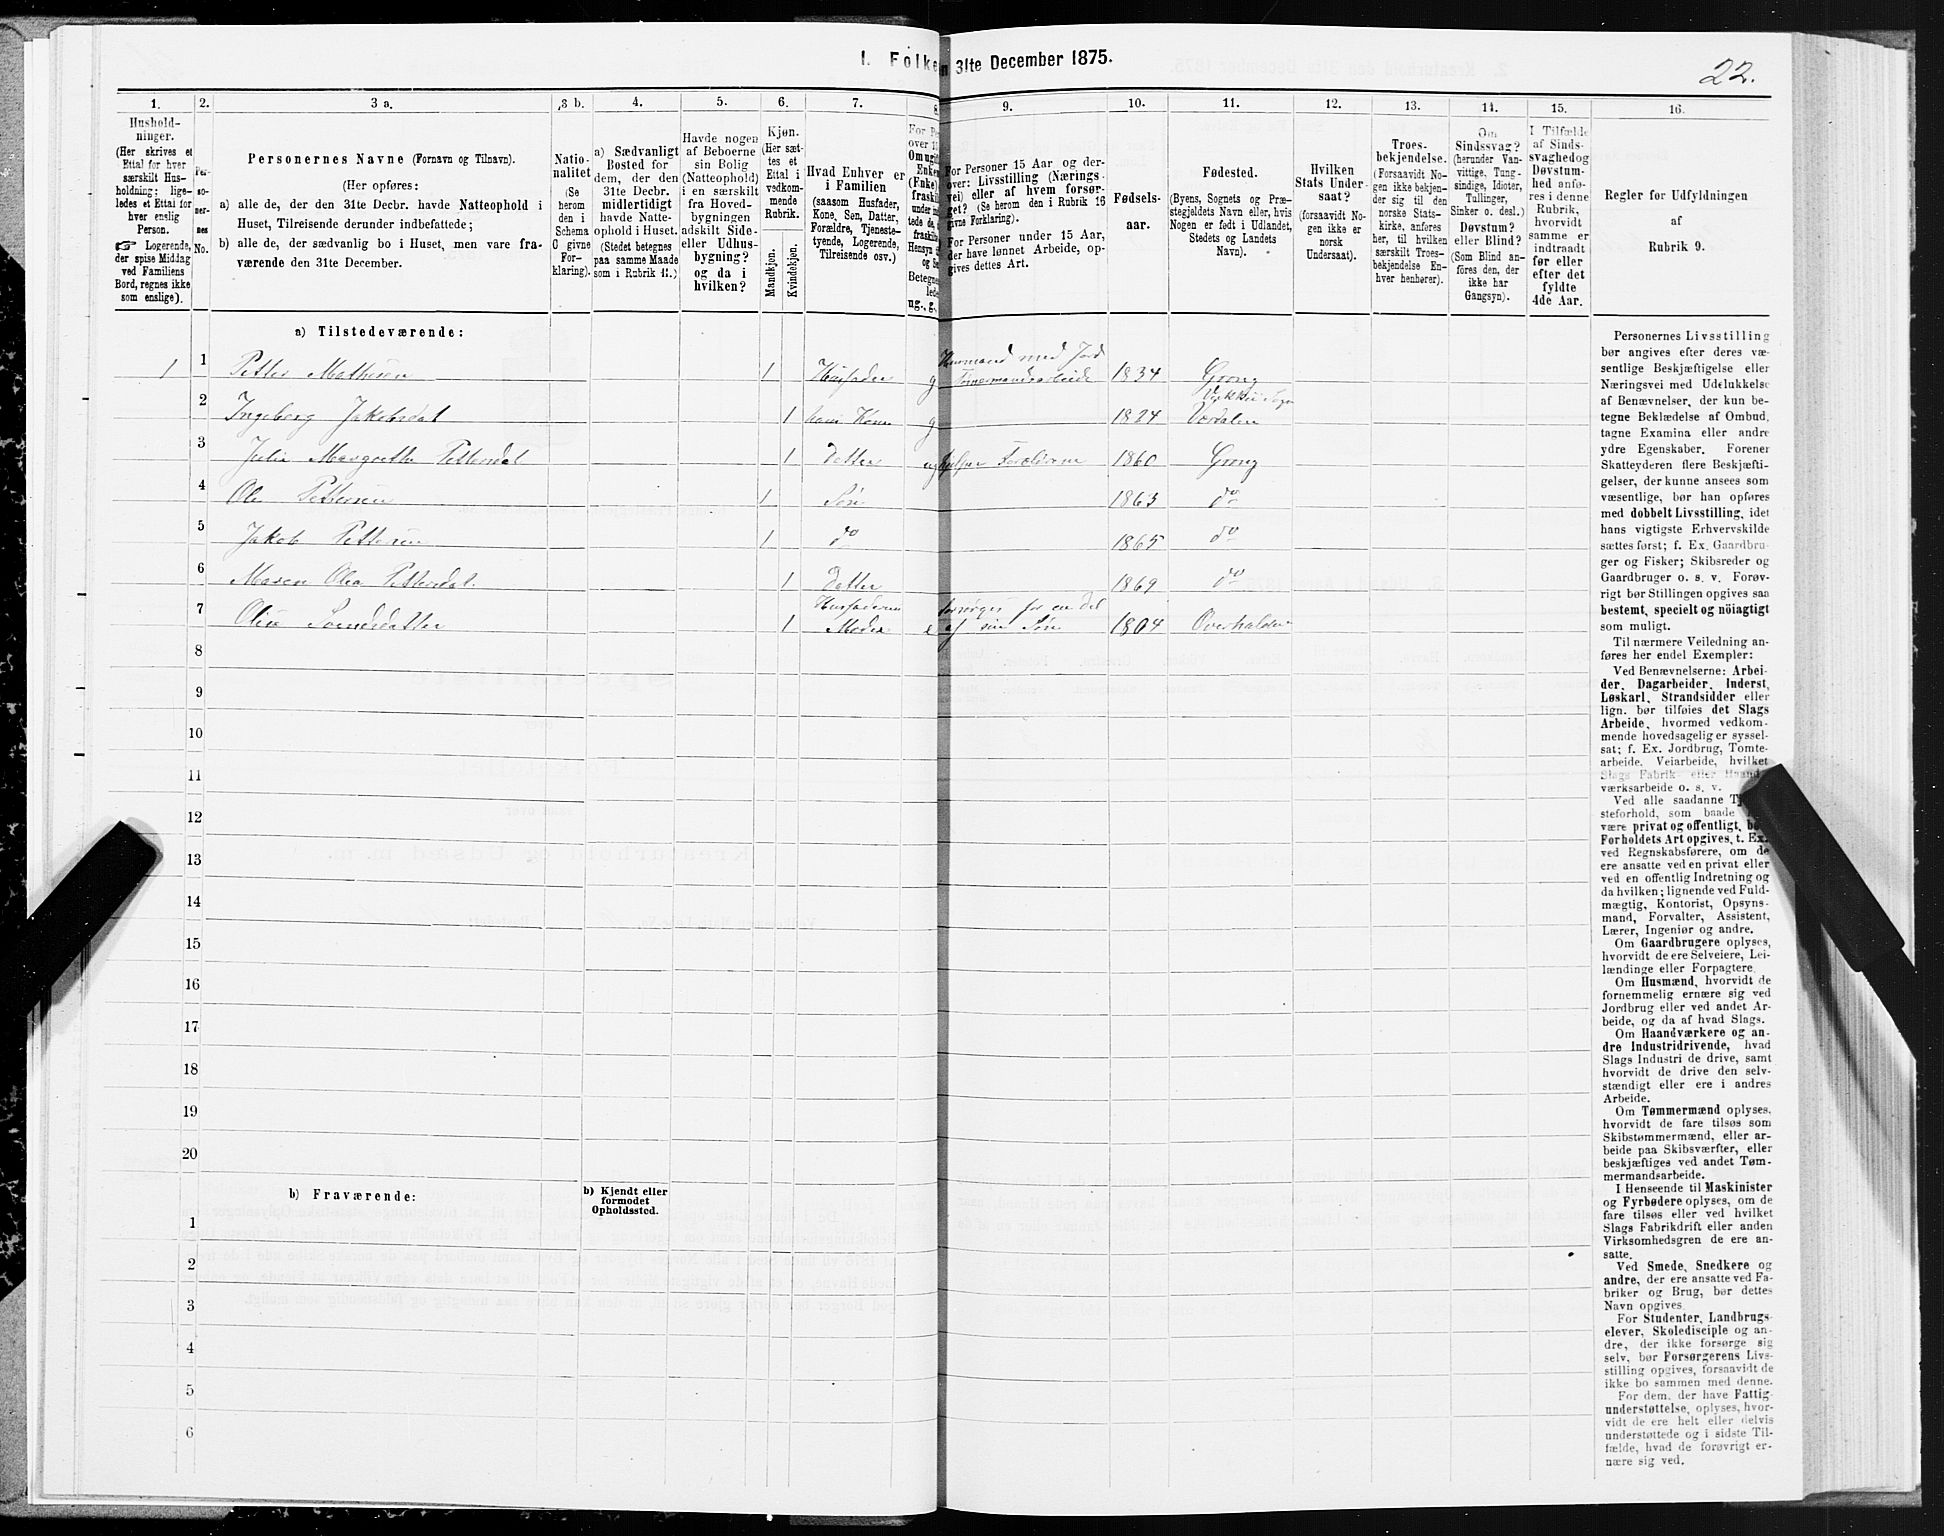 1. Folke n 31te December 1875.
22.
1. 2. 3 a. 3 b. 4. 5. 6. 7. 8 9. 10. 11. 12. 13. 14. 15. 16.
Hushold-
ninger.
(Her skrives et
Ettal for hver
særskilt Hus-
holdning; lige-
ledes et Ettal for
hver enslig
Person.
☞ Logerende,
der spise Middag
ved Familiens
Bord, regnes ikke
som enslige).
Per-
so-
ner-
nes
No.
Personernes Navne (Fornavn og Tilnavn).
(Her opføres:
a) alle de, der den 31te Decbr. havde Natteophold i
Huset, Tilreisende derunder indbefattede;
b) alle de, der sædvanlig bo i Huset, men vare fra-
værende den 31te December.
Natio-
nalitet
(Se
herom
den i
Schema
C givne
For-
klaring).
a) Sædvanligt
Bosted for
dem, der den
31te Decbr.
midlertidigt
havde Natte-
ophold i Huset.
(Stedet betegnes
paa samme Maade
som i Rubrik 11.)
Havde nogen
af Beboerne
sin Bolig
(Natteophold)
i en særskilt
fra Hoved-
bygningen
adskilt Side-
eller Udhus-
bygning?
og da i
hvilken?
Kjøn.
(Her sæt-
tes et
Ettal i
vedkom-
mende
Rubrik.
Mandkjøn.
Kvindekjøn.
Hvad Enhver er
i Familien
(saasom Husfader,
Kone, Søn, Datter,
Forældre, Tjeneste-
tyende, Logerende,
Tilreisende osv.)
For Pe
over 1
Omugif
Enker
(Enke)
fraskil
under in
tede de,
fraskil
Hensyn
og Se
Betegne
lede
ug., g.,
For Personer 15 Aar og der-
over: Livsstilling (Nærings-
vei) eller af hvem forsør-
get? (Se herom den i Rubrik 16
givne Forklaring).
For Personer under 15 Aar,
der have lønnet Arbeide, op-
gives dettes Art.
Fødsels-
aar.
Fødested.
(Byens, Sognets og Præ-
stegjeldets Navn eller, hvis
Nogen er født i Udlandet,
Stedets og Landets
Navn).
Hvilken
Stats Under-
saat?
(forsaavidt No-
gen ikke er
norsk
Undersaat).
Troes-
bekjendelse.
(Forsaavidt No-
gen ikke bekjen-
der sig til den
norske Stats-
kirke, anføres
her, til hvilken
særskilt Troes-
bekjendelse En-
hver henhører).
Om
Sindssvag?
(herunder Van-
vittige, Tung-
sindige, Idioter,
Tullinger,
Sinker o. desl.)
Døvstum?
eller Blind?
(Som Blind an-
føres den, der
ikke har
Gangsyn).
I Tilfælde
af Sinds-
svaghedog
Døvstum-
hed anfø-
res i denne
Rubrik,
hvorvidt
samme er
indtraadt
før eller
efter det
fyldte
4de Aar.
Regler for Udfyldningen
af
Rubrik 9.
a) Tilstedeværende:
1 1 Petter Mathesen 1 Husfader g Husmand med Jord Tømermandsarbeide 1834 Grong
2 Ingeborg Jakobsdat 1 hans Kone g 1824 Værdalen
3 Julie Margrethe Pettersdat 1 Datter ug hjelper Forældrene 1860 Grong
4 Ole Pettersen 1 Søn 1863 do
5 Jakob Pettersen 1 do 1865 do
6 Maren Olea Pettersdat. 1 Datter 1869 do
7 Oline Sørensdatter 1 Husfaderens Moder e forsørges for en del af sin Søn 1804 Overhalden
8
9
10
11
12
13
14
15
16
17
18
19
20
b) Fraværende:
b) Kjendt eller
formodet
Opholdssted.
1
2
3
4
5
6
Personernes Livsstilling
bør angives efter deres væ-
sentlige Beskjæftigelse eller
Næringsvei med Udelukkelse
af Benævnelser, der kun be-
tegne Beklædelse af Ombud,
tagne Examina eller andre
ydre Egenskaber. Forener
Skatteyderen flere Beskjæfti-
gelser, der kunne ansees som
væsentlige, bør han opføres
med dobbelt Livsstilling, idet
hans vigtigste Erhvervskilde
sættes først; f. Ex. Gaardbru-
ger og Fisker; Skibsreder og
Gaardbruger o. s. v. Forøv-
rigt bør Stillingen opgives saa
bestemt, specielt og nöiagtigt
som muligt.
Til nærmere Veiledning an-
føres her endel Exempler:
Ved Benævnelserne: Arbei-
der, Dagarbeider, Inderst,
Løskarl, Strandsidder eller
lign. bør tilføies det Slags
Arbeide, hvormed vedkom-
mende hovedsagelig er syssel-
sat; f. Ex. Jordbrug, Tomte-
arbeide, Veiarbeide, hvilket
Slags Fabrik- eller Haand-
værksarbeide o. s. v.
Ved alle saadanne Tj
steforhold, som baade
være privat og offentligt, bø
Forholdets Art opgives, t. Ex.
ved Regnskabsførere, om de
ere ansatte ved en privat eller
ved en offentlig Indretning og
da hvilken; lignende ved Fuld-
mægtig, Kontorist, Opsyns-
mand, Forvalter, Assistent,
Lærer, Ingeniør og andre.
Om Gaardbrugere oplyses,
hvorvidt de ere Selveiere, Lei-
lændinge eller Forpagtere.
Om Husmænd, hvorvidt de
fornemmelig ernære sig ved
Jordbrug eller ved andet Ar-
beide, og da af hvad Slags.
Om Haandværkere og an-
dre Industridrivende, hvad
Slags Industri de drive, samt
hvorvidt de drive den selv-
stændigt eller ere i andres
Arbeide.
Om Tømmermænd oplyses,
hvorvidt de fare tilsøs som
Skibstømmermænd, eller ar-
beide paa Skibsværfter, eller
beskjæftiges ved andet Tøm-
mermandsarbeide.
I Henseende til Maskinister
og Fyrbødere oplyses, om de
fare tilsøs eller ved hvilket
Slags Fabrikdrift eller anden
Virksomhedsgren de ere an-
satte.
Ved Smede, Snedkere og
andre, der ere ansatte ved Fa-
briker og Brug, bør dettes
Navn opgives.
For Studenter, Landbrugs-
elever, Skoledisciple og an-
dre, der ikke forsørge sig
selv, bør Forsørgerens Livs-
stilling opgives, forsaavidt de
ikke bo sammen med denne.
For dem, der have Fattig-
understøttelse, oplyses, hvor-
vidt de ere helt eller delvis
understøttede og i sidste Til-
fælde, hvad de forøvrigt er-
nære sig ved.